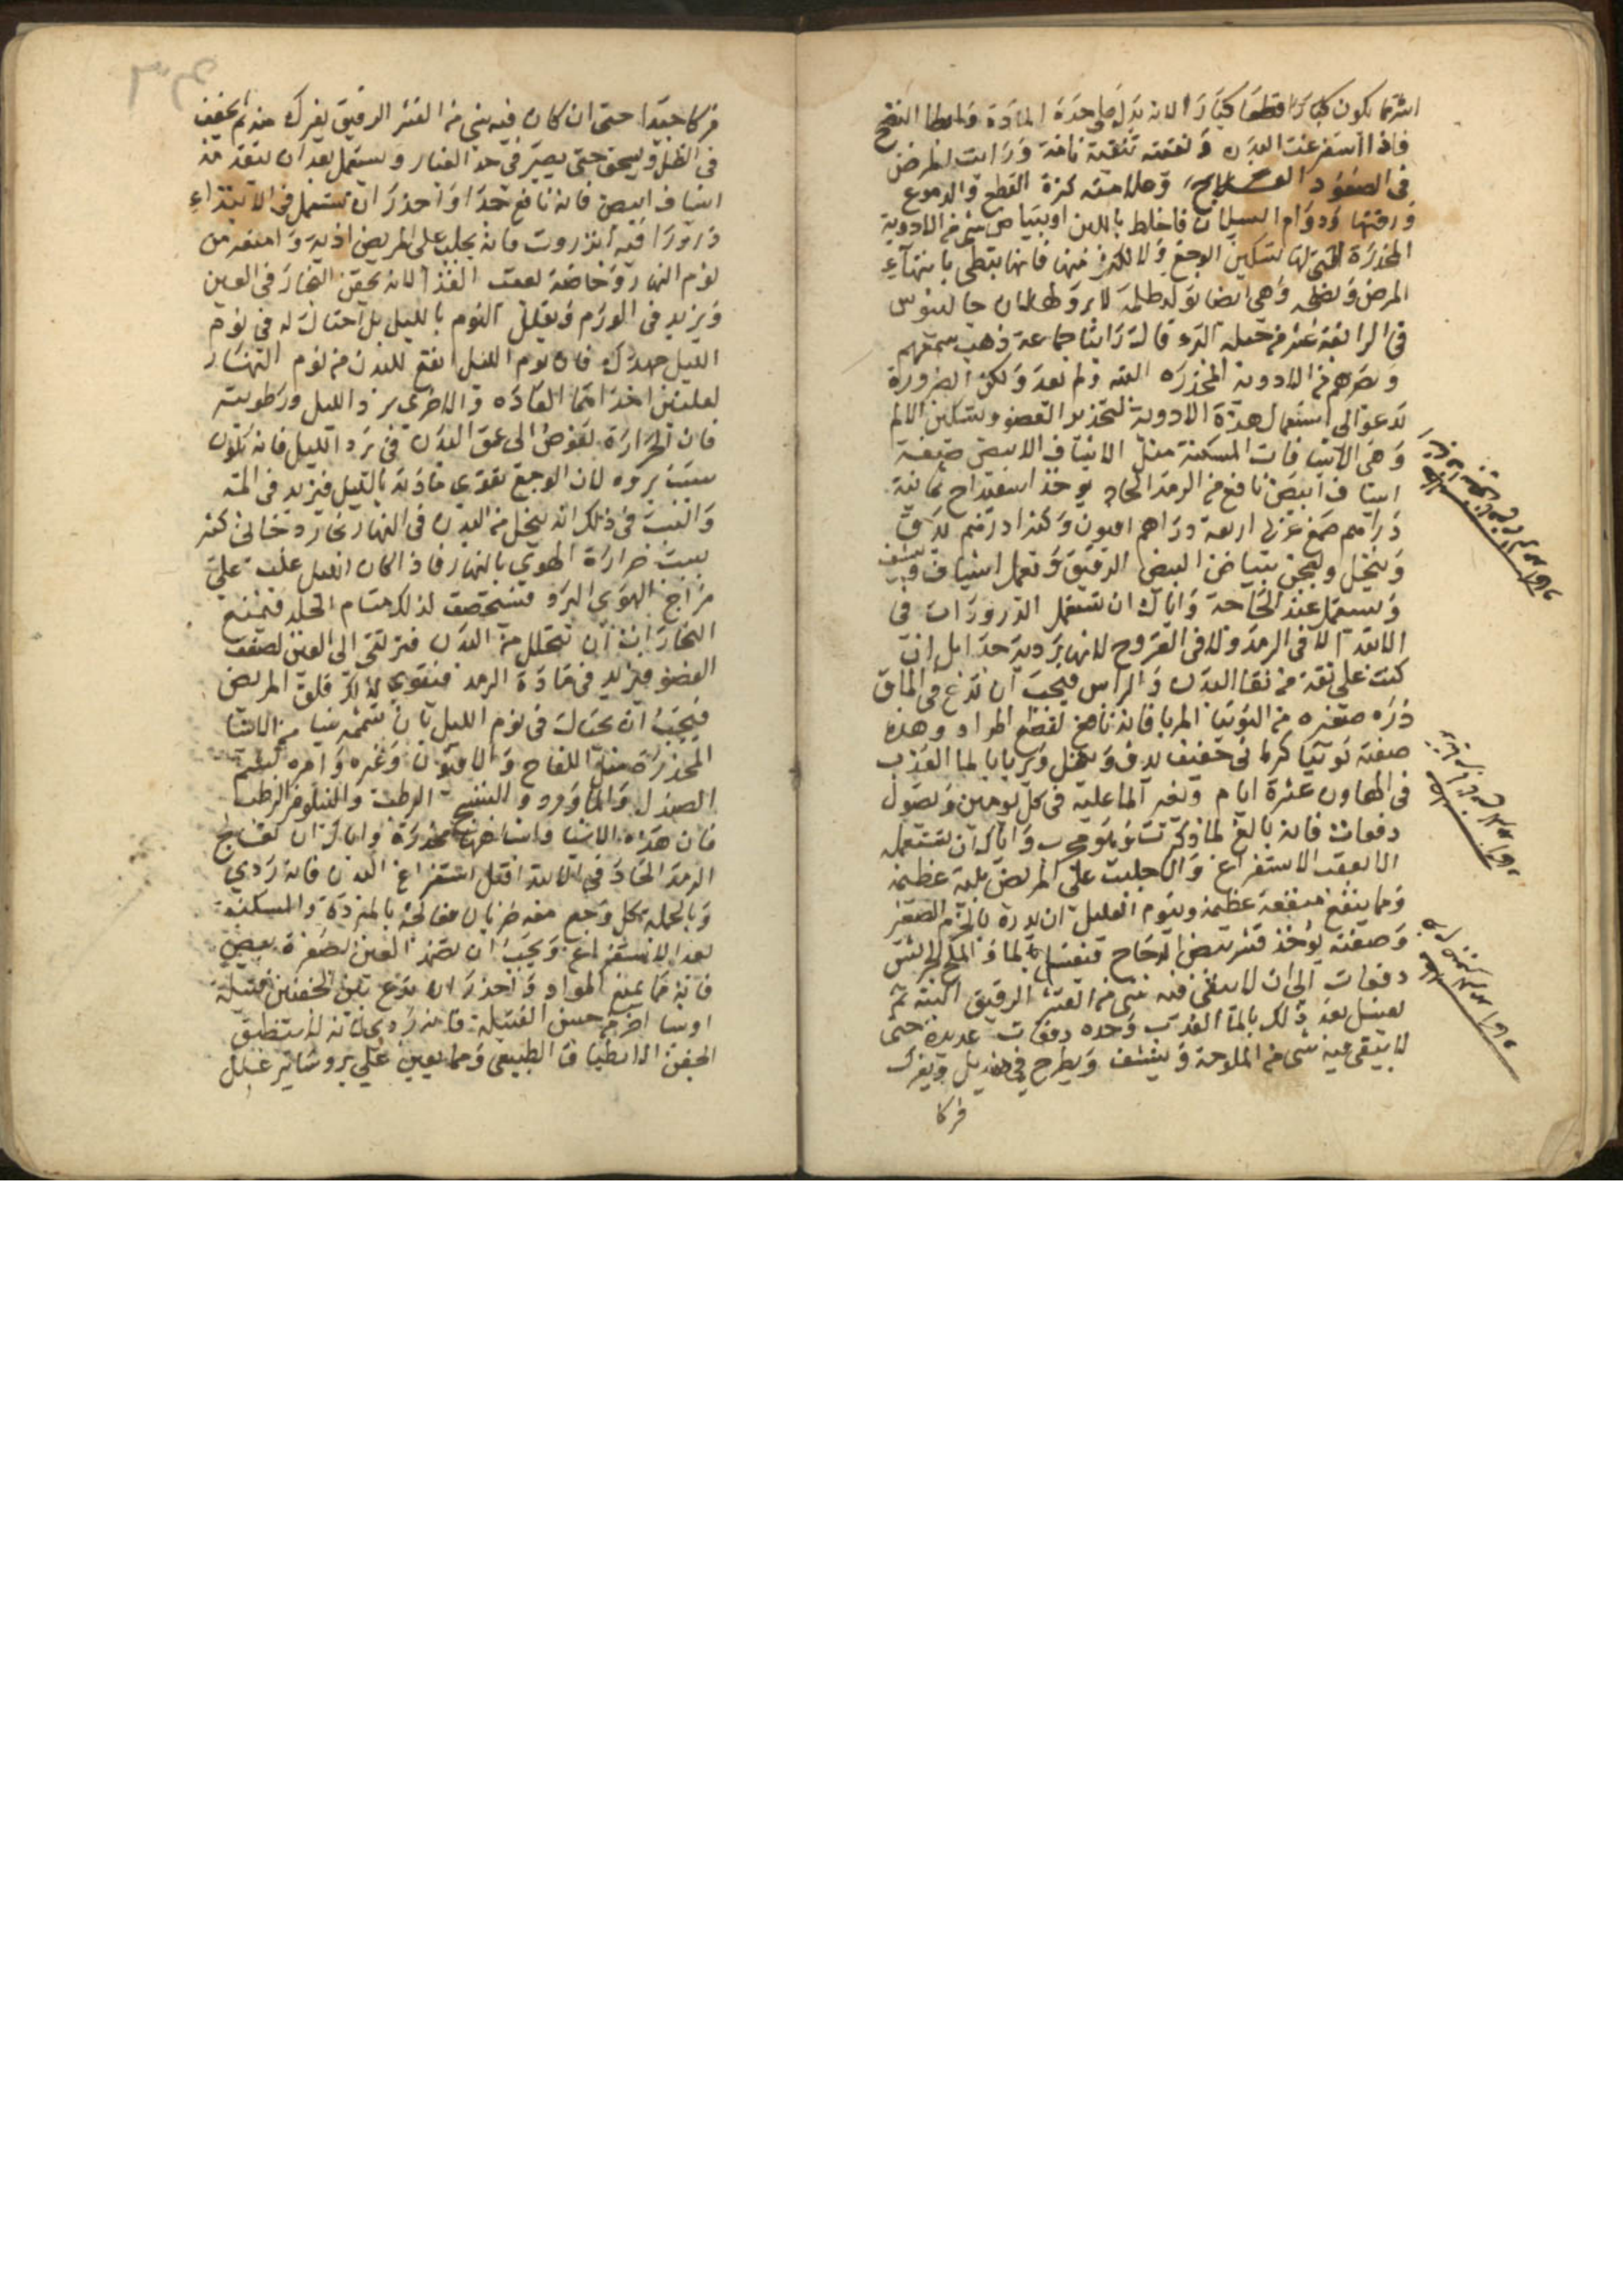 اشر مما يكون كبارا قطعا كبارا لانه يدل على حدة المادة وابطا النضج
فاذا استفرغت البدن ونقيته تنقية تامة ورايت المرض
في الصعود العلاج وعلامته كثرة القطع والدموع
ورقتها ودوام السيلان فاخلط باللبن او ببياض شي من الادوية
المخدرة التي لها تسكين الوجع ولا تكثر منها فانها تبطي بانتهاء
المرض وهي ايضا تولد ظلمة لا برو لها لان جالينوس
في الرابعة عشر من حيلة البرء قال قد راينا جماعة ذهب سمعهم
وبصرهم من الادوية المخدرة البتة ولم يعد ولكن الضرورة
تدعو الى استعمال هذه الادوية لتخدير العضو وتسكين الالم
وهي الاشيافات المسكنة مثل الاشياف الابيض صفة
اشياف ابيض نافع من الرمد الحاد يوخذ اسفيداج ثمانية
دراهم صمغ عربي اربعة دراهم افيون وكثيرا درهم يدق
وينخل ويعجن ببياض البيض الرقيق ويعمل اشياف وينشف
ويستعمل عند الحاجة واياك ان تستعمل الذرورات في
الابتدا لا في الرمد ولا في القروح لانها ردية جدا بل ان
كنت على ثقة من نقا البدن والراس فيجب ان تدع في الماق
ذره صغيره من التوتيا المربا فانه ناجع لقطع المواد وهذه
صفته توتيا كرماني خفيف يدق وينخل ويربا بالما العذب
في الهاون عشرة ايام ويغير الما عليه في كل يومين ويصول
دفعات فانه بالغ لما ذكرت وهو مجرب واياك ان تستعمله
الا بعقب الاستفراغ والا جلبت على المريض بلية عظيمة
ومما ينفع منفعة عظيمة وينوم العليل ان يذره بالخرم الصغير
وصفته يوخذ قشر بيض الدجاج فيغسل بالما والملح الجريش
دفعات الى ان لا يبقى فيه شي من القشر الرقيق البتة ثم
يغسل بعد ذلك بالما العذب وحده دفعات عديدة حتى
لا يبقى فيه شي من الملوحة وينشف ويطرح في منديل ويفرك
فركا
فركا جيدا حتى ان كان فيه شي من القشر الرقيق يفرك منه ثم يجفف
في الظل ويسحق حتى يصير في حد الغبار ويستعمل بعد ان يتقدمه
اشياف ابيض فانه نافع جدا واحذر ان تستعمل في الابتداء
ذرورا فيه انزروت فانه يجلب على المريض اذية وامنعه من
نوم النهار وخاصة بعقب الغذا لانه يحقن البخار في العين
ويزيد في الورم ويقلل النوم بالليل بل احتال له في نوم
الليل جهدك فان نوم الليل انفع للبدن من نوم النهار
لعلتين احداهما العاده والاخرى برد الليل ورطوبته
فان الحرارة تغوص الى عمق البدن في برد الليل فانه يكون
سبب بروه لان الوجع تقوي ماذته بالليل فيزيد في المه
والسبب في ذلك انه ينحل من البدن في النهار بخار دخاني كثير
بسبب حرارة الهوي بالنهار فاذا كان الليل غلب على
مزاج الهوي البرد فتستحصف لذلك مسام الجلد فيمتنع
البخارات ان تتحلل من البدن فترتقي الى العين لضعف
العضو فيزيد في مادة الرمد فيقوي لذلك قلق المريض
فيجب ان تحتال في نوم الليل بان تشممه شيا من الاشيا
المخدرة مثل اللفاح والافيون وغيره وامره بشم
الصندل والماورد والبنفسج الرطب والنيلوفر الرطب
فان هذه الاشيا واشباهها مخدرة واياك ان تعالج
الرمد الحاد في الابتدا قبل استفراغ البدن فانه ردي
وبالجملة كل وجع معه ضربان معالجته بالمبردة والمسكنة
بعد الاستفراغ ويجب ان تضمد العين بصفرة بيض
فانه مما يمنع المواد واحذر ان تدع بين الجفنين فتيلة
اوشيا اخر من جنس الفتيلة فانه ردي لانه لا ينطبق
الجفن الانطباق الطبيعي ومما يعين على برو شاثر علل